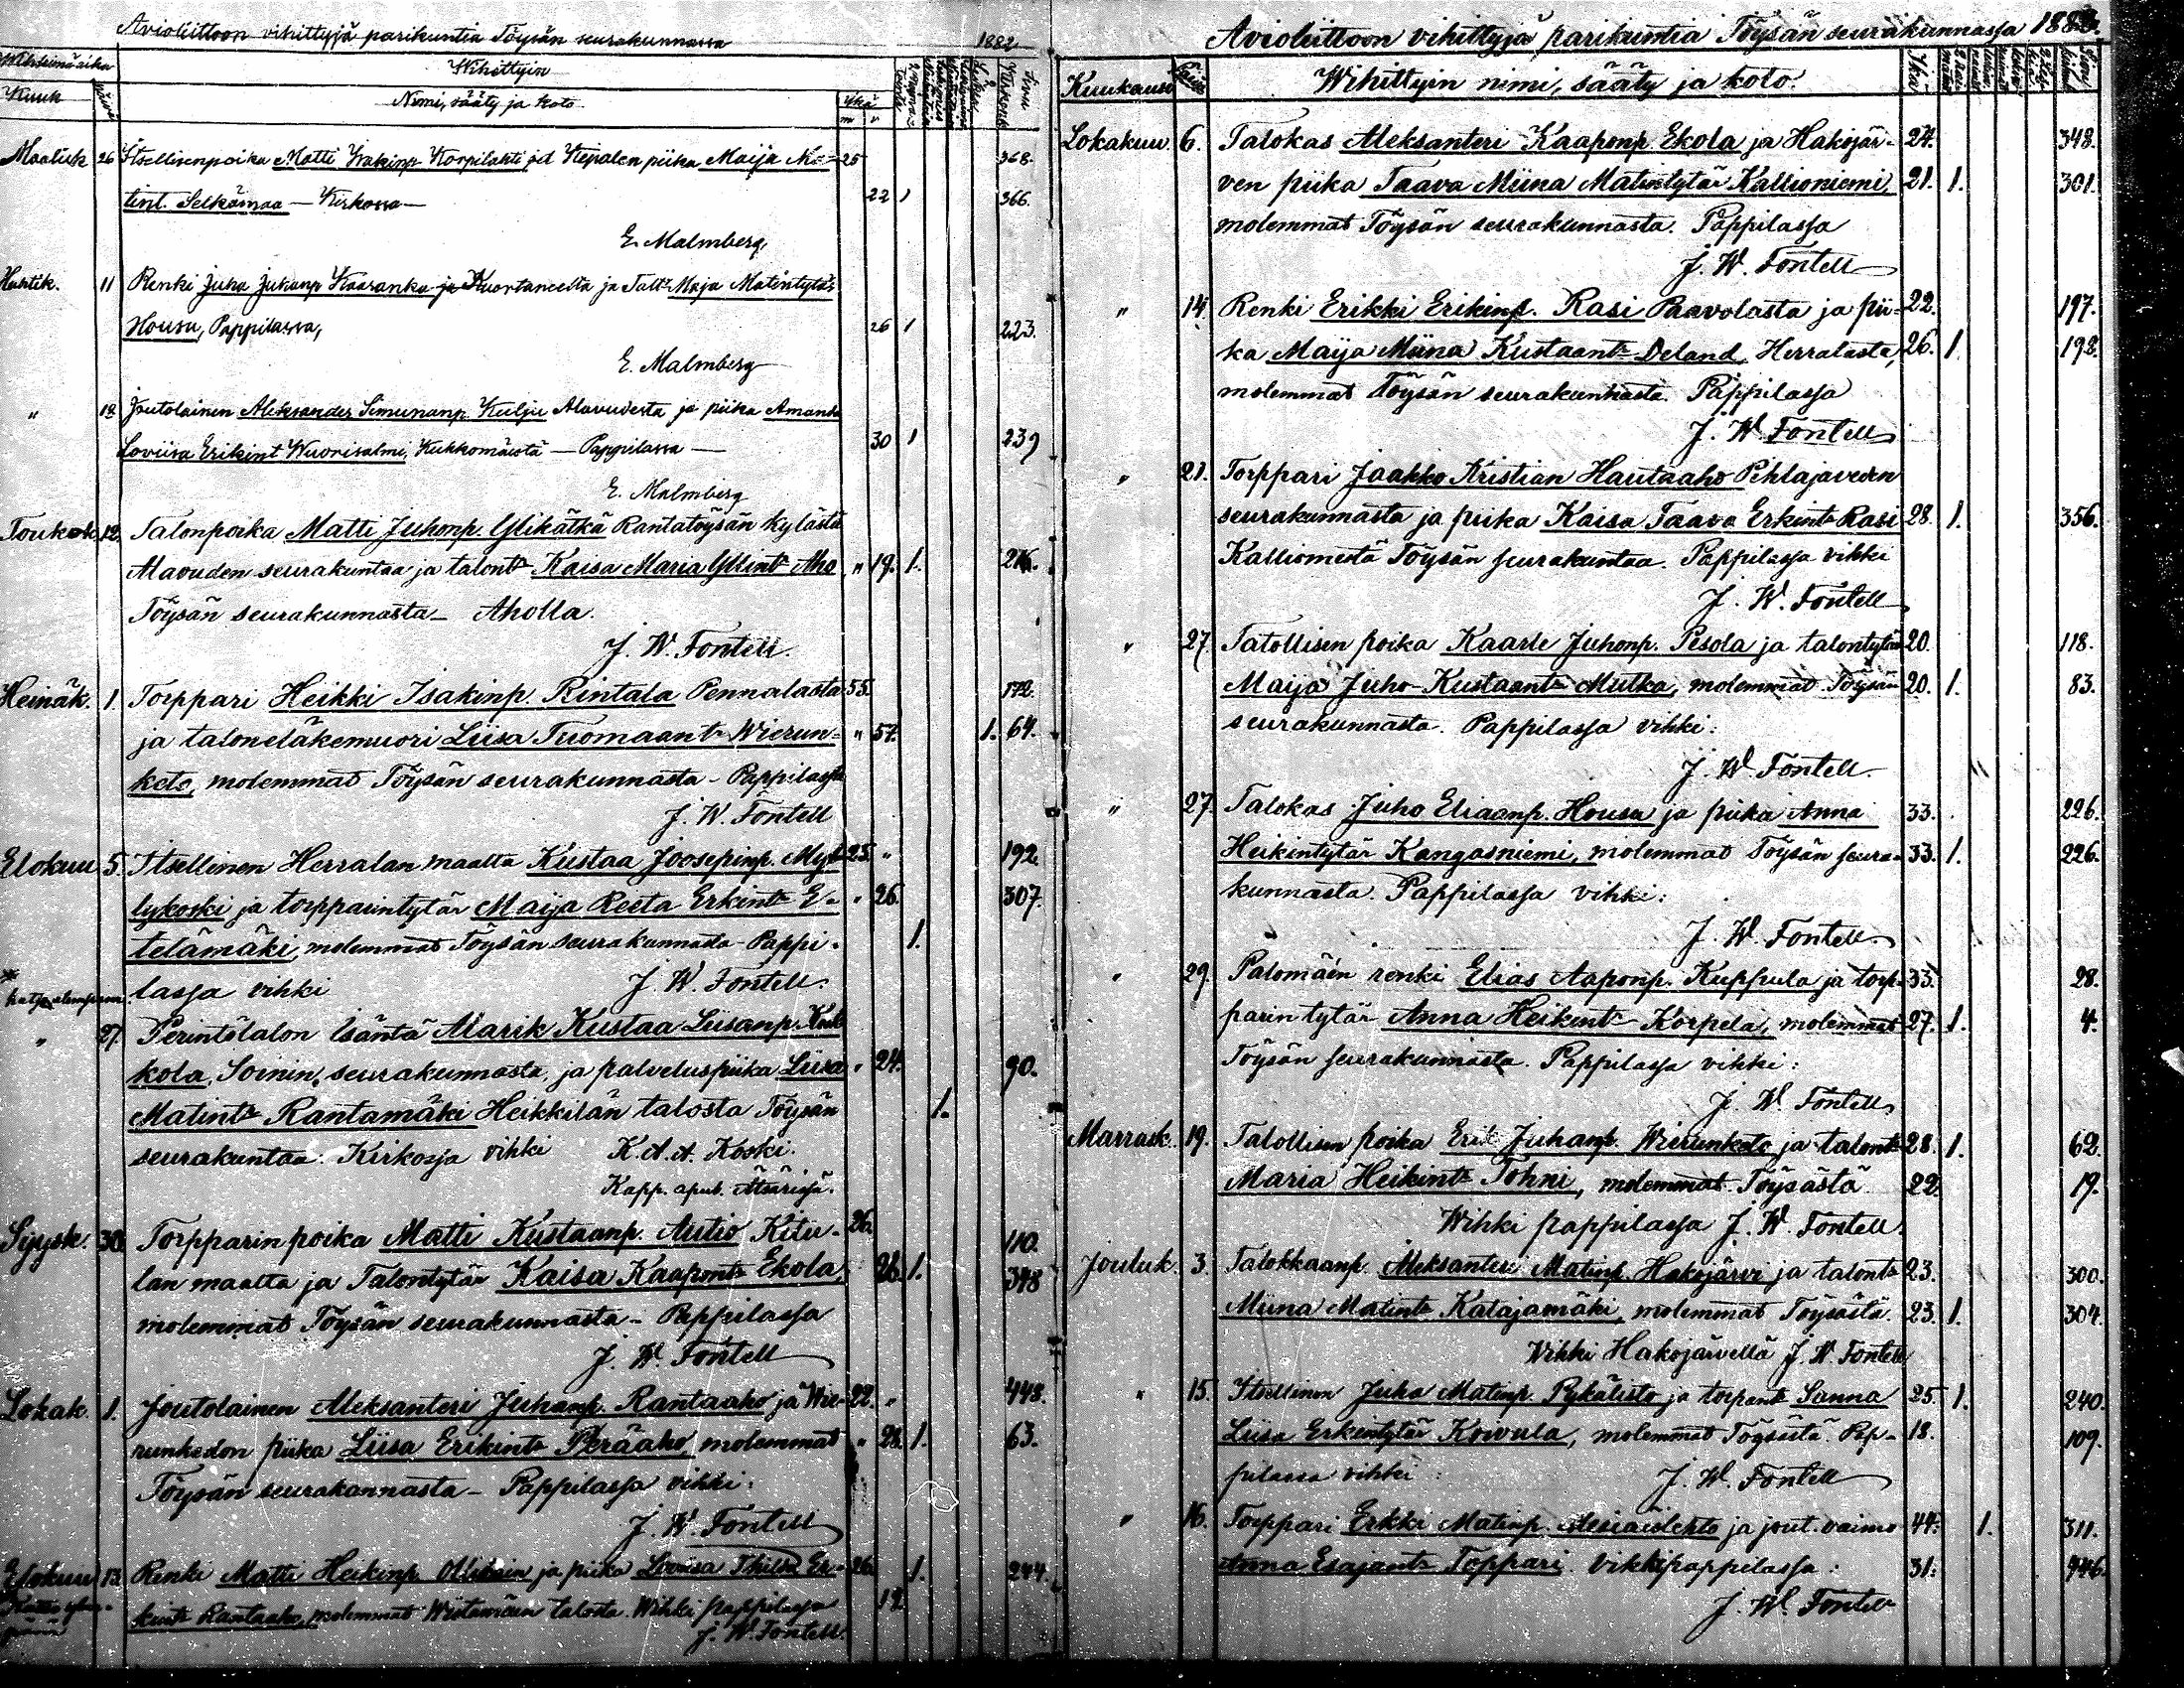 Avioliittoon vihittyjä parikuntia Töysän seurakunnassa 1882
Wihkimäaika
Kuuk
Wihittyin
Nimi, sääty ja koto
Ikä
m v
Maalisk 26 Itsellisenpoika Matti Iisakinp Korpilahti ja piika Maija Ma- 25 368.
tint. Selkämaa — Kirkossa — 22 1 366.
E. Malmberg
Huhtik. 11 Renki Juha Juhanp Kaaranka ja Kuortaneelta ja Talt: Maja Matintytär
Housu, Pappilassa, 26 1 223.
E. Malmberg
" Joutolainen Aleksander Simunanp Kulju Alavudesta ja piika Amanda
Loviisa Erikint Wuorisalmi, Kukkomäestä — Pappilassa — 30 1 239
E. Malmberg
Toukok 12. Talonpoika Matti Juhonp. Ylikätkä Rantatöysän kylästä
Alavuden seurakuntaa ja talont: Kaisa Maria Ollint: Aho " 19. 1.
Töysän seurakunnasta — Aholla.
J. W. Fontell.
Heinäk. 1. Torppari Heikki Isakinp. Rintala Pennalasta 55. 172.
ja taloneläkemuori Liisa Tuomaant: Wierun- " 57. 1. 64.
keto, molemmat Töysän seurakunnasta - Pappilassa
J. W. Fontell
Elokuu 5. Itsellinen Herralan maalta Kustaa Joosepinp. Myl- 25. " 192.
lykoski ja torpparintytär Maija Reeta Erkint: E- " 26. 307.
telämäki, molemmat Töysän seurakunnasta - Pappi- 1.
lassa vihki J. W. Fontell
katso alempana
" 27. Perintötalon isäntä Alarik Kustaa Liisanp. Kuk
kola, Soinin seurakunnasta, ja palveluspiika Liisa " 24. 90.
Matint: Rantamäki Heikkilän talosta Töysän 1.
seurakuntaa. Kirkossa vihki K. A. A. Koski.
Kapp. apul. Ätsärissä.
Syysk. 30. Torpparinpoika Matti Kustaanp. Autio Kitu- 26. 110.
lan maalta ja Talontytär Kaisa Kaapont: Ekola, 26. 1. 348
molemmat Töysän seurakunnasta - Pappilassa
J. W. Fontell
Lokak. 1. Joutolainen Aleksanteri Juhanp. Rantaaho ja Wie- 22. " 448.
runkedon piika Liisa Erikint: Peräaho, molemmat " 28. 1. 63.
Töysän seurakunnasta - Pappilassa vihki:
J. W. Fontell
Elokuu 13. Renki Matti Heikinp. ja piika Loviisa Er- 26. 1. 244.
kint: Rantaaho, molemmat talosta. Wihki pappilassa 19
J. W. Fontell.
Avioliittoon vihittyjä parikuntia Töysän seurakunnassa 1882.
Kuukausi Päivä Wihittyin nimi, sääty ja koto. Ikä
Lokakuu. 6. Talokas Aleksanteri Kaaponp. Ekola ja Hakojär- 24. 348.
ven piika Taava Miina Matintytär Kallioniemi, 21. 1. 301.
molemmat Töysän seurakunnasta. Pappilassa
J. W. Fontell
" 14. Renki Erikki Erikinp. Rasi Paavolasta ja pii- 22. 197.
ka Maija Miina Kustaant: Deland Herralasta, 26. 1. 198.
molemmat Töysän seurakunnasta. Pappilassa
J. W. Fontell
" 21. Torppari Jaakko Kristian Hautaaho Pihlajaveden
seurakunnasta ja piika Kaisa Taava Erkint: Rasi 28. 1. 356.
Kalliomestä Töysän seurakuntaa. Pappilassa vihki
J. W. Fontell
" 27. Talollisen poika Kaarle Juhonp. Pesola ja talontytär 20. 118.
Maija Juho-Kustaant: Mutka, molemmat Töysän 20. 1. 83.
seurakunnasta. Pappilassa vihki:
J. W. Fontell.
" 27. Talokas Juho Eliaanp. Housu ja piika Anna 33. 226.
Heikintytär Kangasniemi, molemmat Töysän seura- 33. 1. 226.
kunnasta. Pappilassa vihki:
J. W. Fontell.
" 29. Palomäen renki Elias Aaponp. Kuppula ja torp- 33. 28.
parin tytär Anna Heikint: Korpela, molemmat 27. 1. 4.
Töysän seurakunnasta. Pappilassa vihki:
J. W. Fontell
Marrask. 19. Talollisen poika Erik Juhanp. Wierunketo ja talont: 28. 1. 62.
Maria Heikint: Tohni, molemmat Töysästä 22. 19.
Wihki pappilassa J. W. Fontell.
Jouluk. 3. Talokkaanp. Aleksanteri Matinp. Hakojärvi ja talont: 23. 300.
Miina Matint: Katajamäki, molemmat Töysästä. 23. 1. 304.
Vihki Hakojärvellä J. W. Fontell
" 15. Itsellinen Juha Matinp. Pykälistö ja torpant: Sanna 25. 1. 240.
Liisa Erkintytär Koivula, molemmat Töysästä. Pap- 18. 109.
pilassa vihki: J. W. Fontell
" 16. Torppari Erkki Matinp. ja jout. vaimo 44. 1. 311.
Anna Esajant: Toppari. Vihki pappilassa: 31. 446.
J. W. Fontell